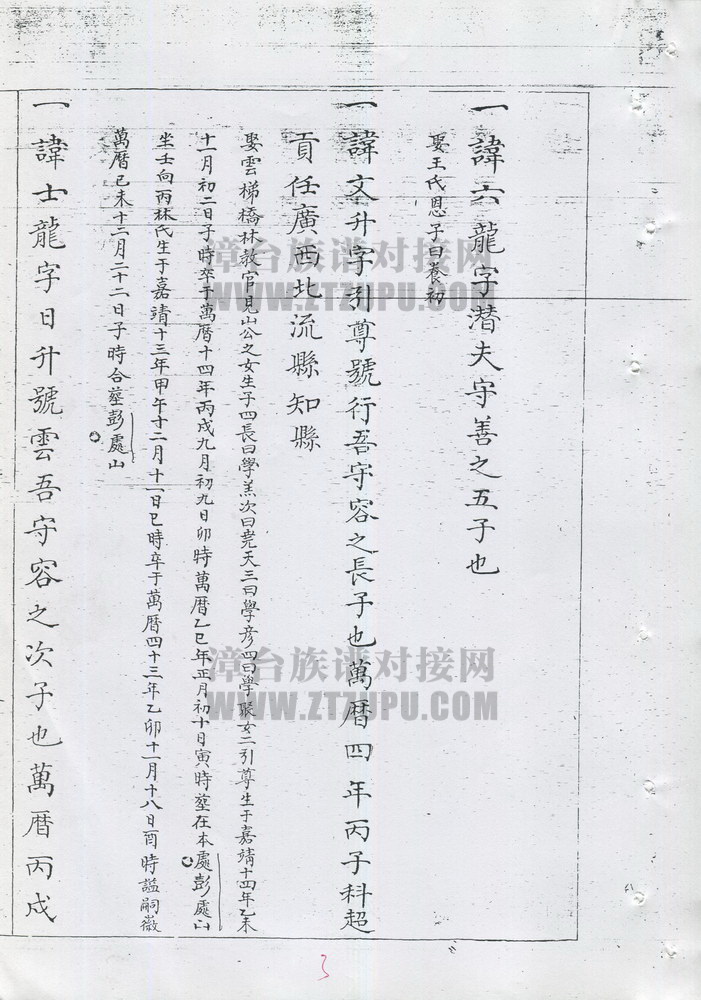 一諱六龍字潛夫守善之五子也
娶王氏恩子曰養初
一諱文升字引尊號行吾守容之長子也萬曆四年丙子科超
貢任廣西北流縣知縣
娶雲梯橋林教官見山公之女生子四長曰學羔次曰堯天三曰學彥四曰學聚女二引尊生于嘉靖十四年乙未
十一月初二日子時卒于萬曆十四年丙戌九月初九日卯時萬曆乙巳年正月初十日寅時塟在本處彭處山
坐壬向丙林氏生于嘉靖十三年甲午十二月十一日巳時卒于萬曆四十三年乙卯十一月十八日酉時謚嗣徽
萬曆己未十二月二十二日子時合塟彭處山
一諱士龍字日升號雲吾守容之次子也萬曆丙戌
漳台族谱对接网
WWW.ZTZUPU.COM
漳台族谱对接网
WWW.ZTZUPU.COM
3